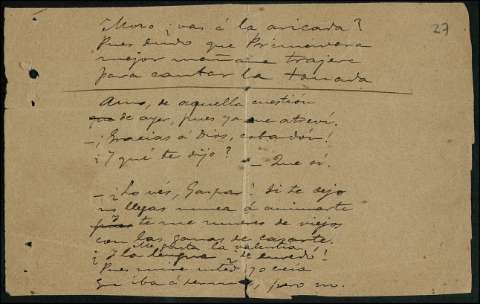 27
Moro ¿vas á la
Pues dudo que Primavera
mejor mañana trajere
para cantar la tonada
Amo, de aquella cuestión
de ayer, pues ya me atreví.
— ¡Gracias á Dios,
¿Y qué te dijo? — Que sí.
— ¿Lo vés, Gaspar? Si te dejo
no llegas nunca á animarte
y te me mueres de viejo
con las ganas de casarte.
Me gusta la valentía
¿Y la lengua
Pues mire usted, yo creía
que iba á pero no.